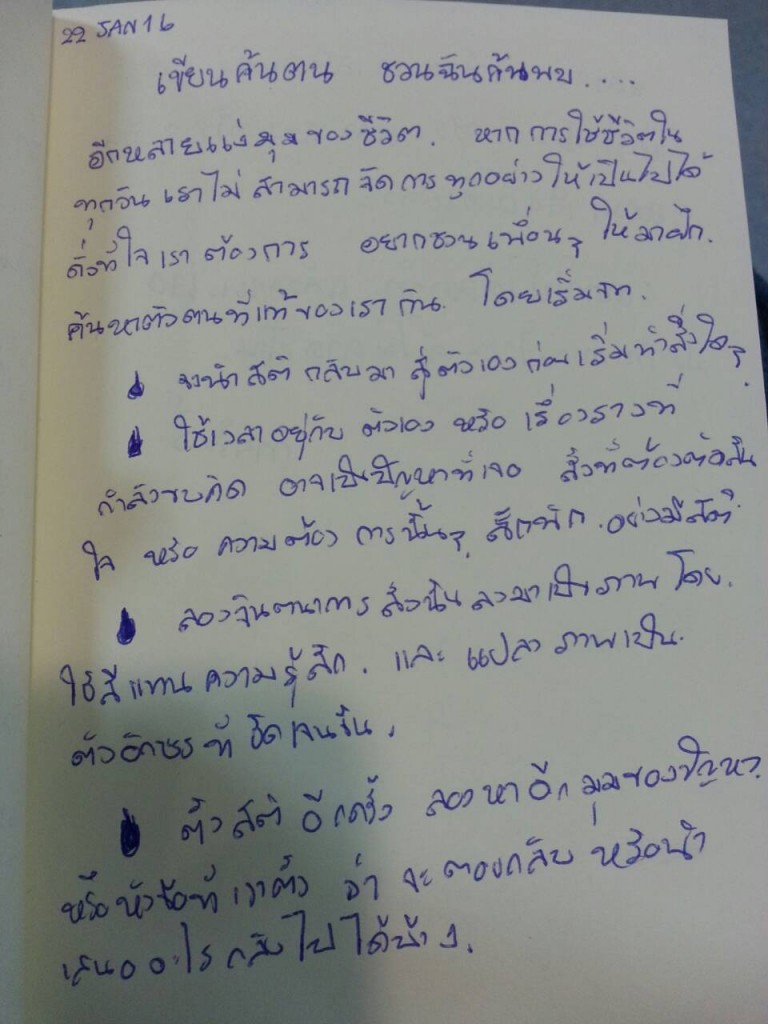 22 JAN 16
เขียนค้นตน ชวนฉันค้นพบ....
อีกหลายแง่มุมของชีวิต. หากการใช้ชีวิตใน
ทุกวัน เราไม่สามารถจัดการทุกอย่างให้เป็นไปได้
ดั่งที่ใจเราต้องการ อยากชวนเพื่อนๆ ให้มาฝึก.
ค้นหาตัวตนที่แท้ของเรากัน. โดยเริ่มจาก.
นำสติกลับมาสู่ตัวเองก่อนเริ่มทำสิ่งใดๆ
ใช้เวลาอยู่กับ ตัวเอง หรือ เรื่องราวที่
กำลังขบคิด อาจเป็นปัญหาที่เจอ สิ่งที่ต้องตัดสิน
ใจ หรือ ความต้องการนั้นๆ สักพัก. อย่างมีสติ.
ลองจินตนาการ สิ่งนั้นลงมาเป็นภาพ โดย.
ใช้สีแทนความรู้สึก. และ แปลภาพเป็น.
ตัวอักษรที่ชัดเจนขึ้น.
ตั้งสติอีกครั้ง ลองหาอีกมุมของปัญหา.
หรือหัวข้อที่เราตั้ง ว่า จะตอบกลับ หรือนำ
เสนออะไรกลับไปได้บ้าง.